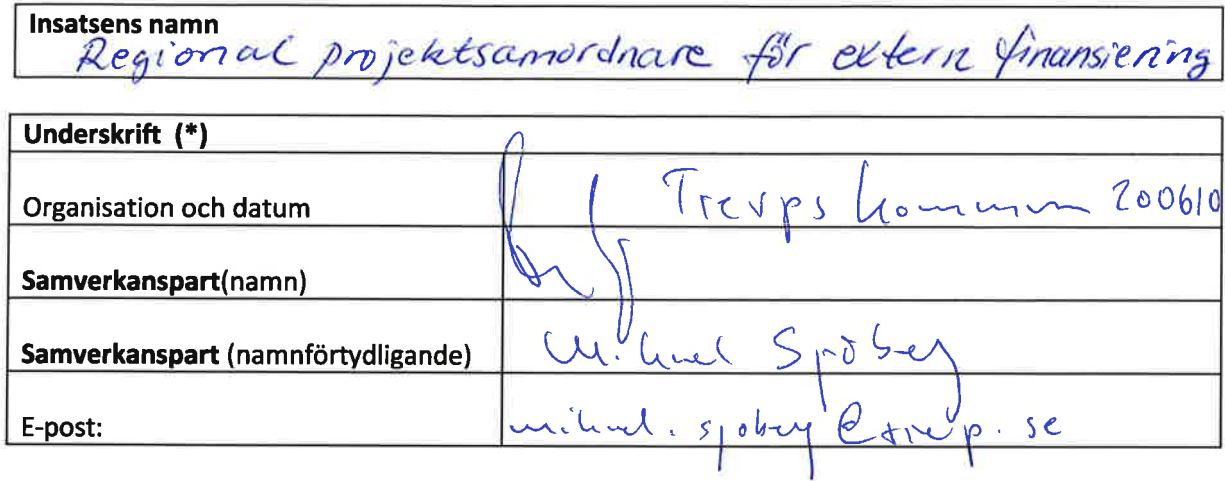 Insatsens namn
Regional projektsamordnare för extern finansiering
Underskrift (*)
Organisation och datum Tierps kommun 200610
Samverkanspart(namn)
Samverkanspart (namnförtydligande) Mikael Sjöberg
E-post: mikael.sjoberg@tierp.se